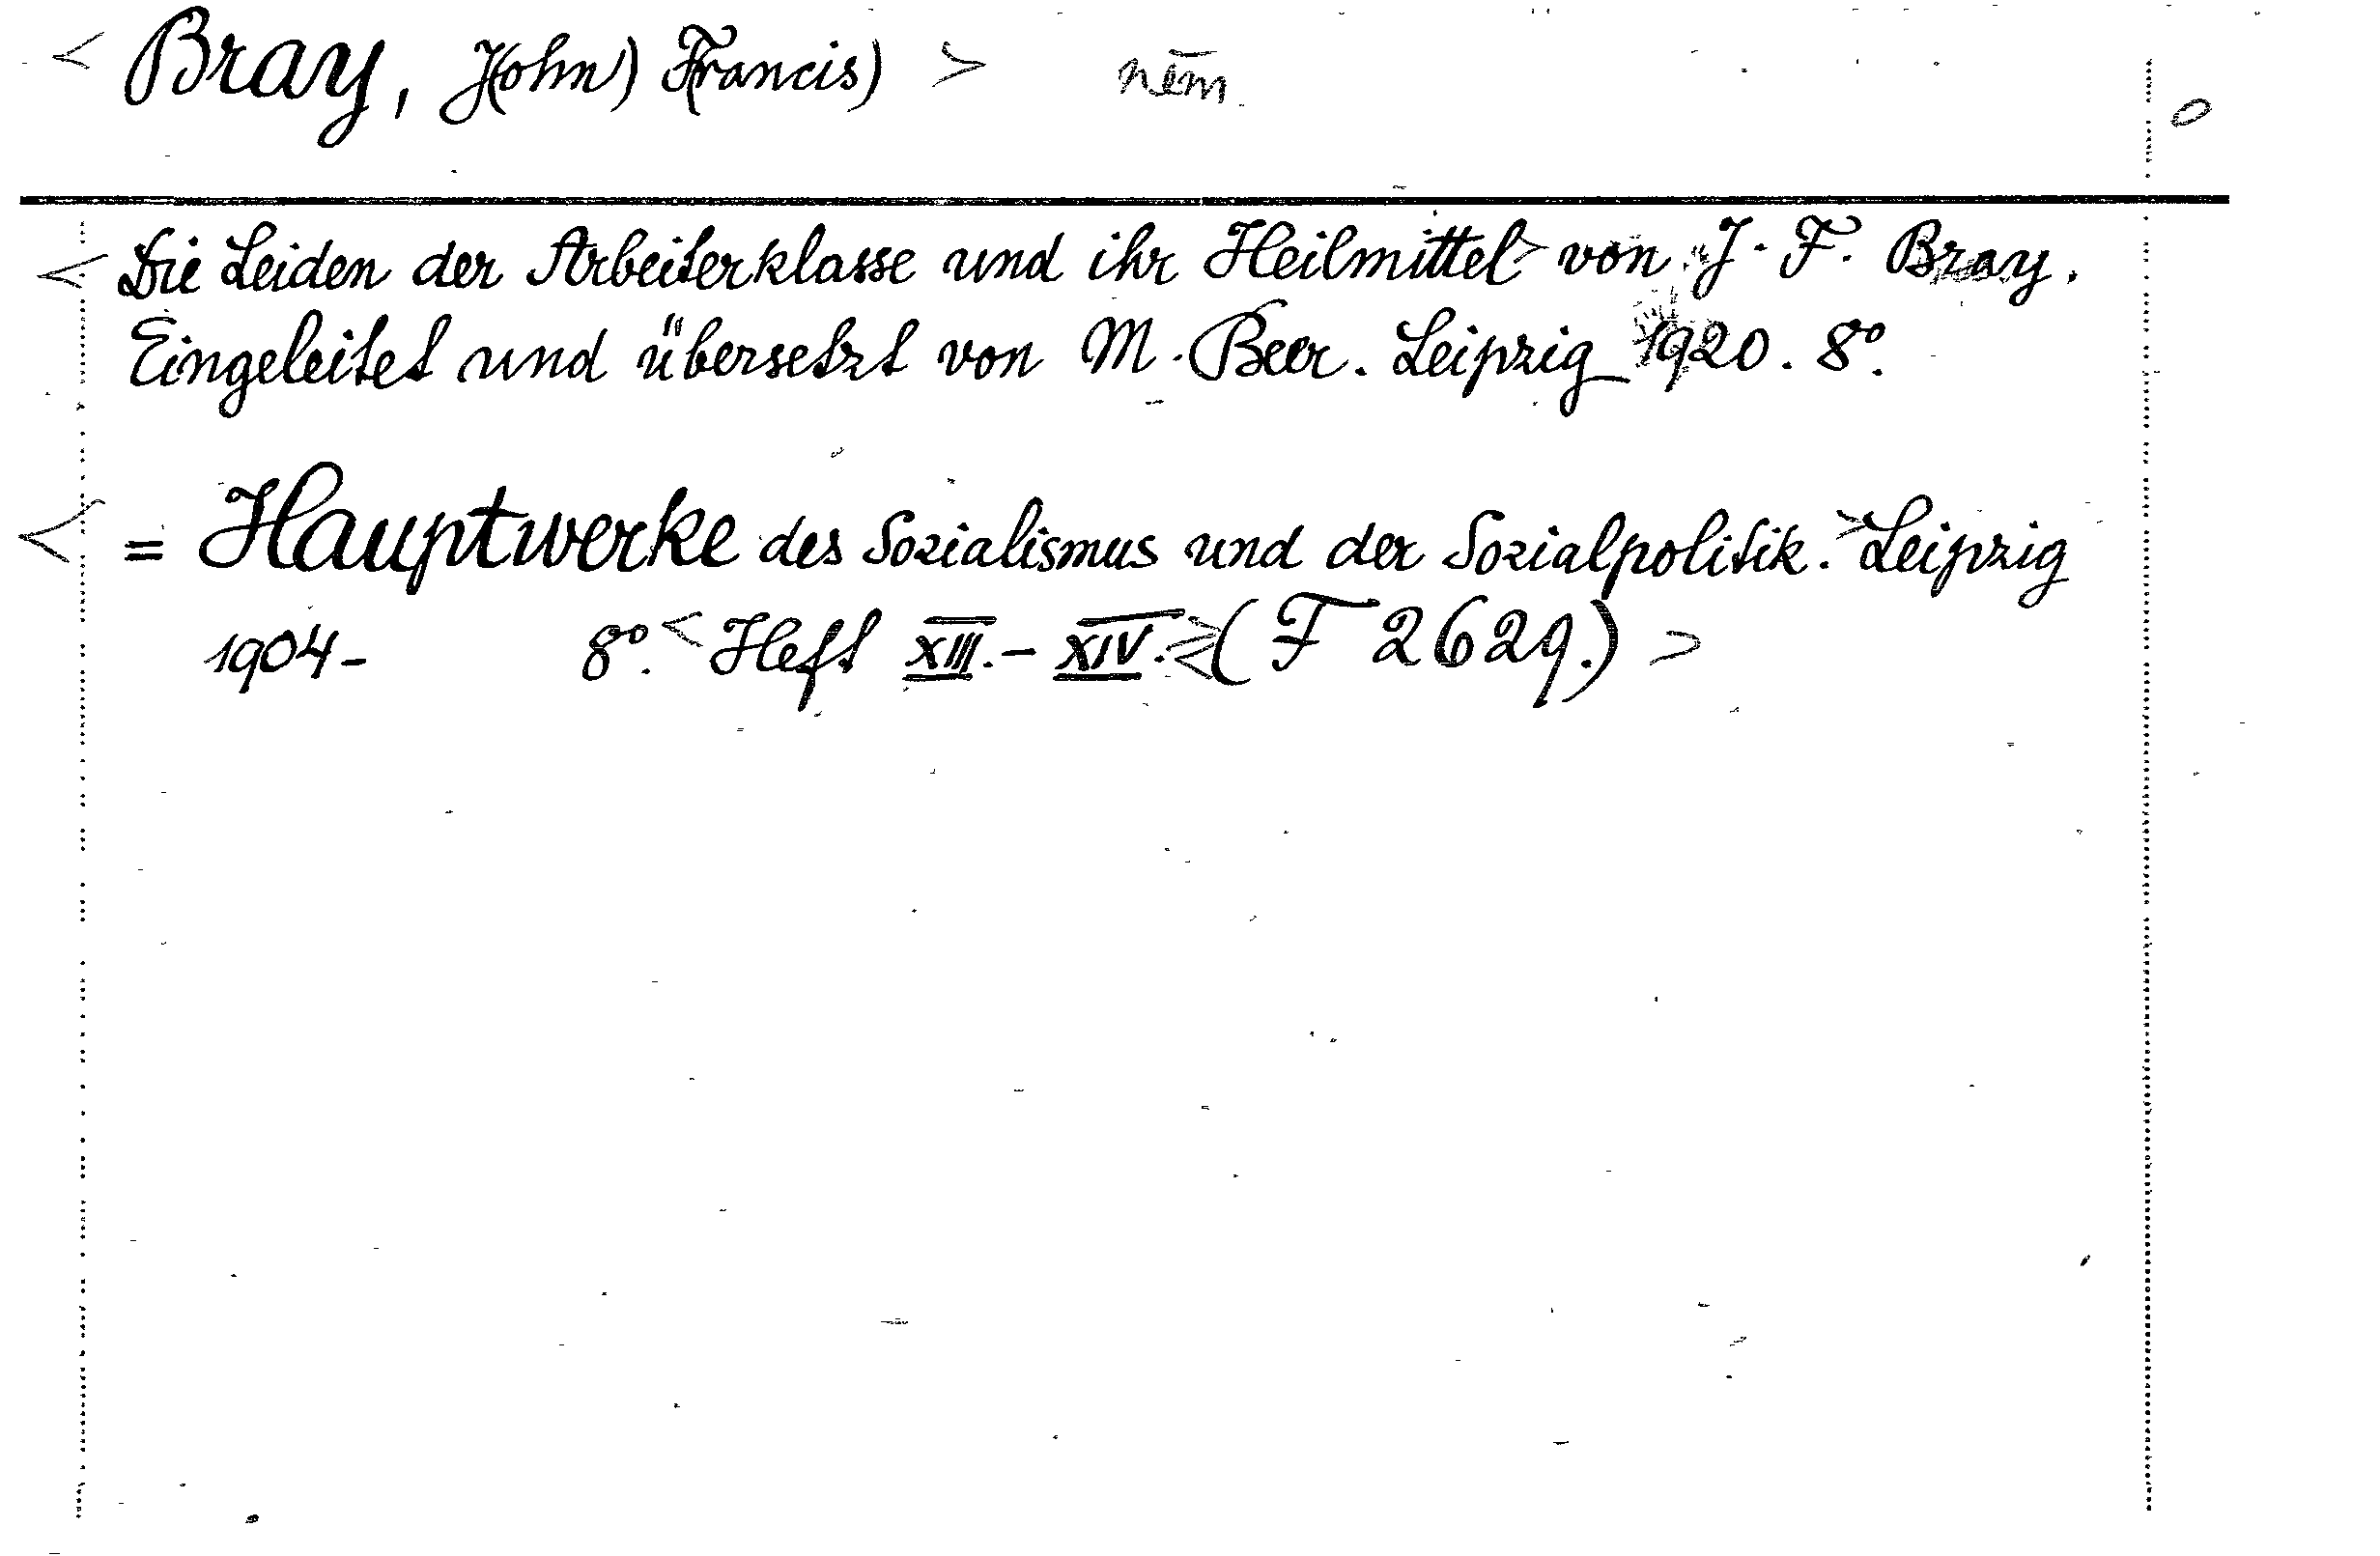 < Bray, J(ohn) F(rancis) > něm.
< Die Leiden der Arbeiterklasse und ihr Heilmittel > von J. F. Bray.
Eingeleitet und übersetzt von M. Beer. Leipzig 1920. 8°.
< = Hauptwerke des Sozialismus und der Sozialpolitik. > Leipzig
1904- 8°. < Heft XIII. - XIV. > < (F 2629.) >